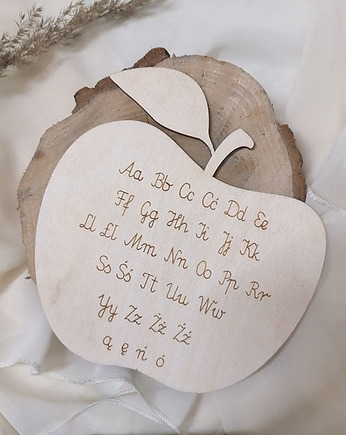 Aa Bb Cc Ćć Dd Ee
Ff Gg Hh Ii Jj Kk
Ll Łł Mm Nn Oo Pp Rr
Ss Śś Tt Uu Ww
Yy Zz Żż Źź
ą ę ń ó